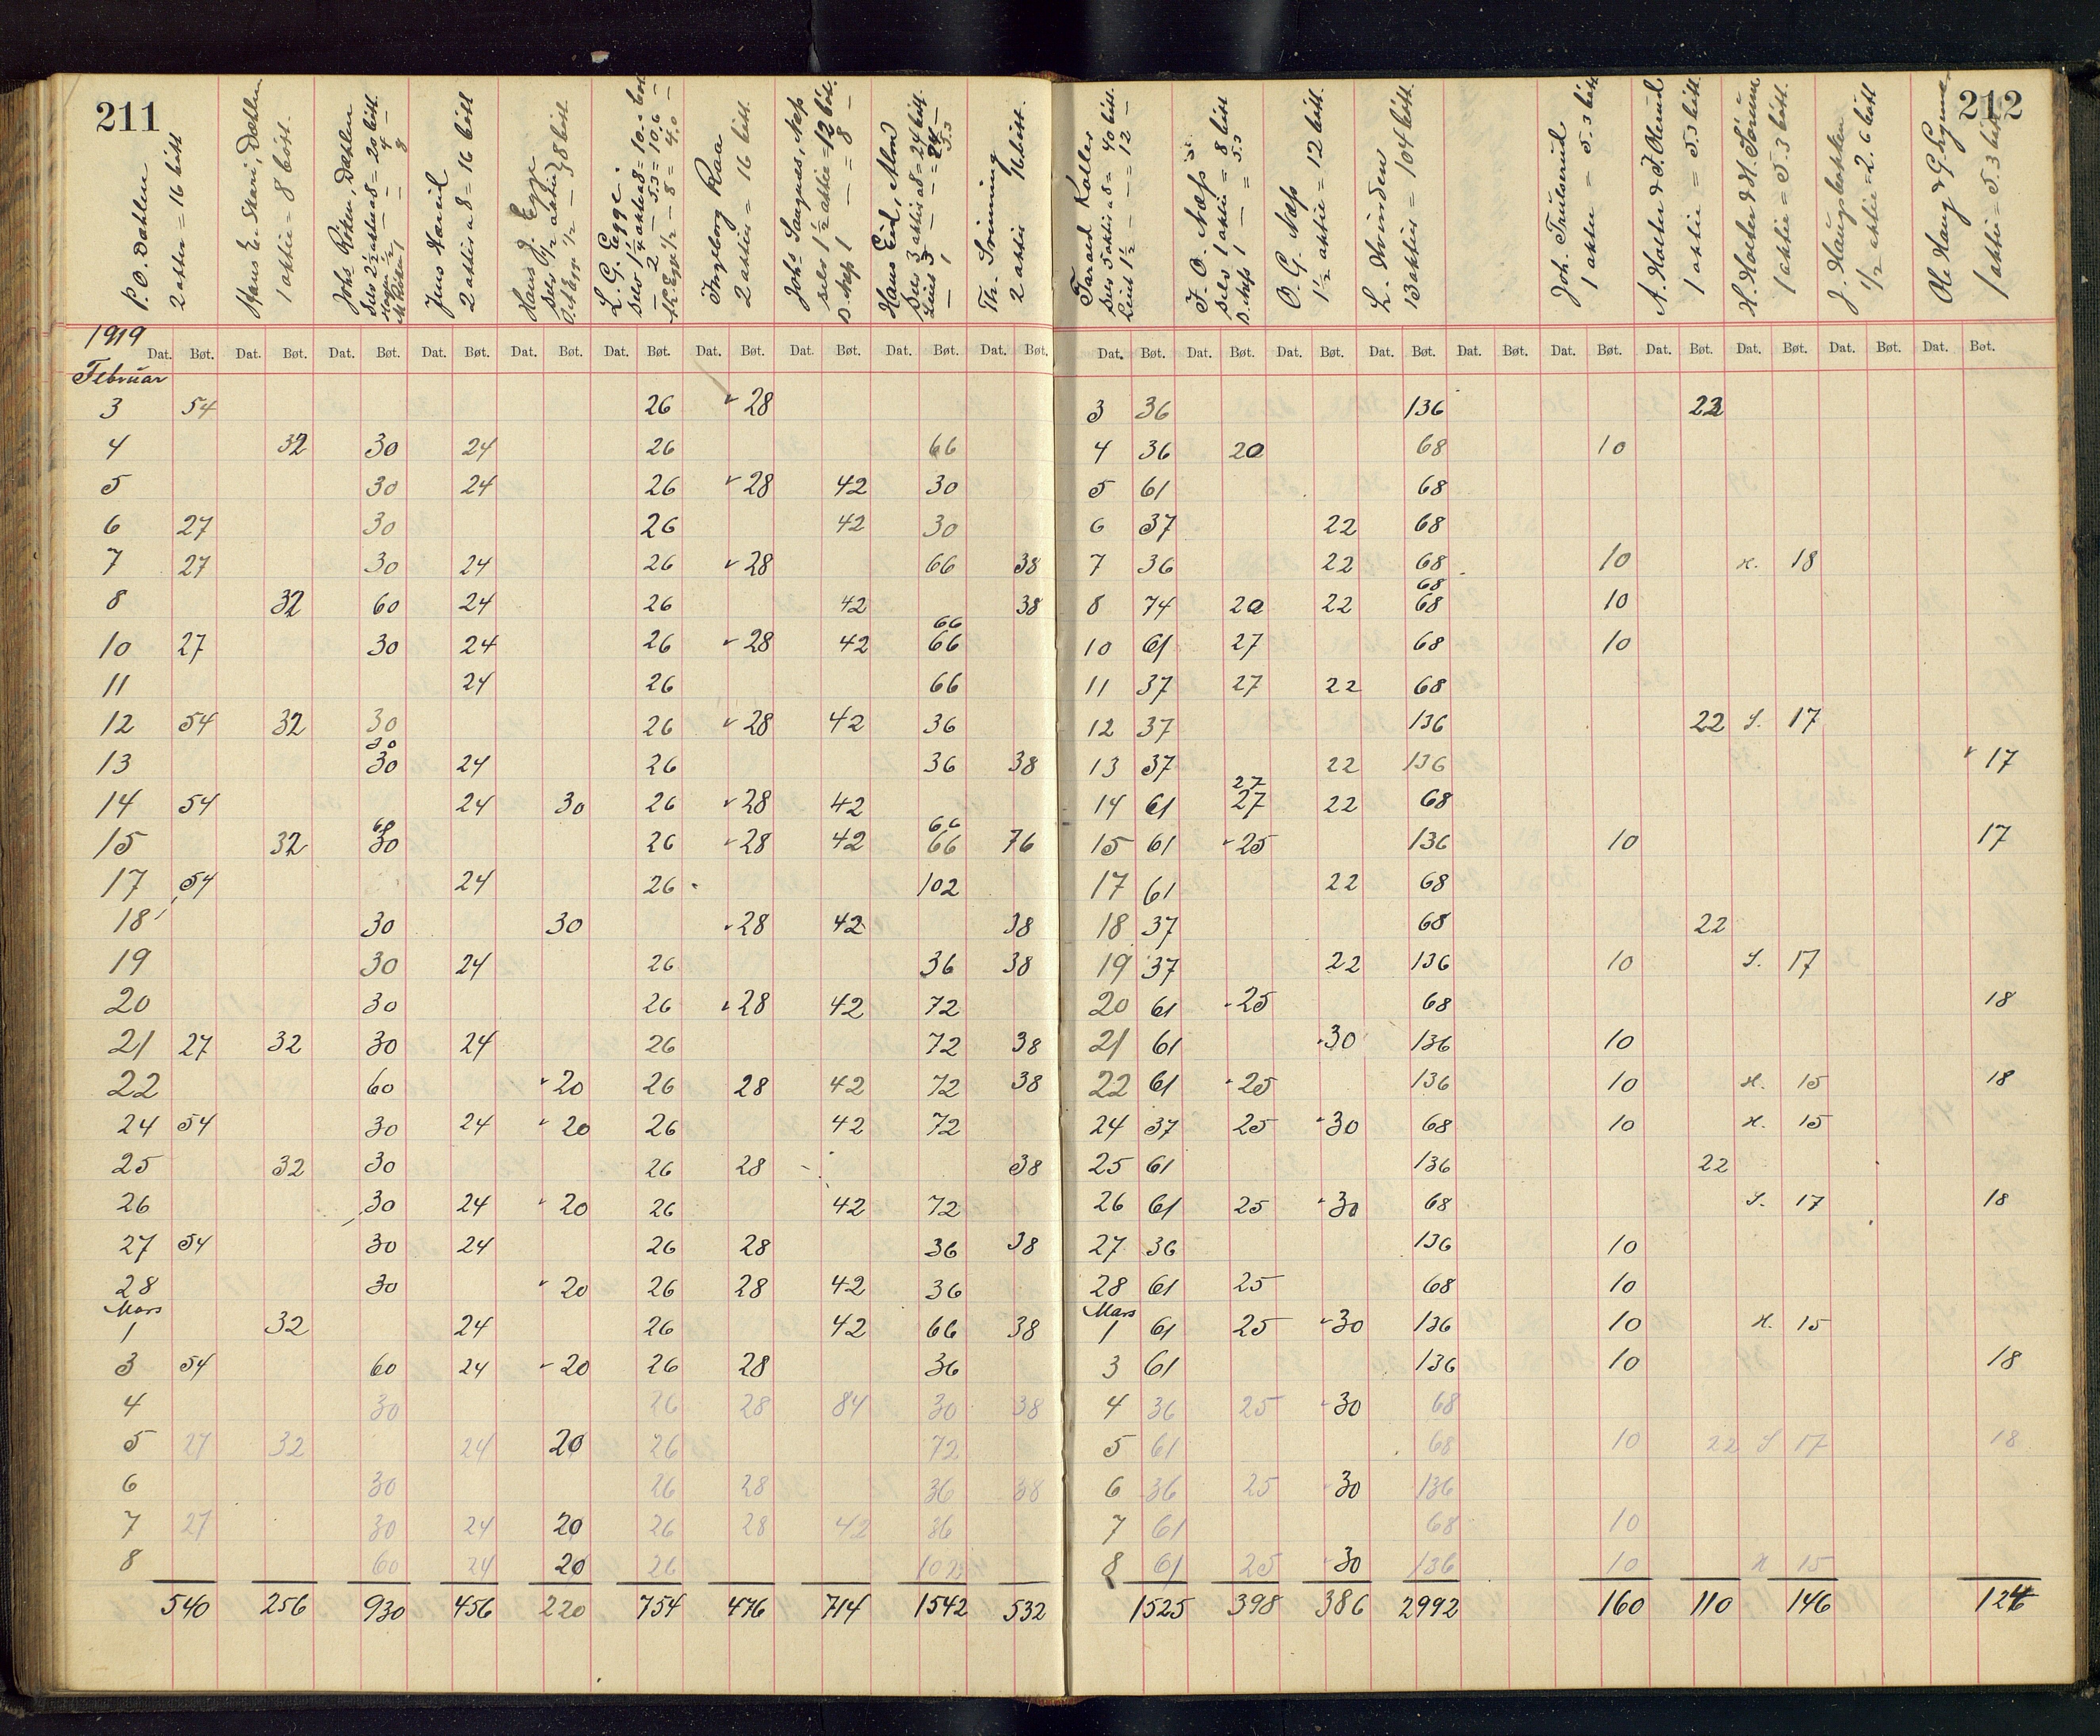 211
P. O. Dahlen
2 aktier = 16 bøtt
Hans E. Skari, Dahlen
1 aktie = 8 bøtt.
Johs Røken, Dahlen
Selv 2½ aktie a 8 = 20 bøtt.
2 aktier a 8 = 16 bøtt
Hans J. Egge
L. G. Egge.
Ingeborg Raa
2 aktier = 16 bøtt.
Johs Saugnes, Næs
Selv 1½ aktie = 12 bøtt.
D. Næs 1 — — = 8 —
Hans Eid, Alm
Selv 3 aktie a 8 = 24 bøtt.
2 aktie 16 bøtt.
Tarald Kolles
Selv 5 aktie a 8 = 40 bøtt.
Leiet 1½ — — = 12 —
J. O. Næss
Selv 1 aktie = 8 bøtt
D. Næs 1 — = 5.3
O. G. Næss
1½ aktie = 12 bøtt.
L. Hvinden
13 aktier = 104 bøtt.
Joh. Trulserud
1 aktie = 5.3 bøtt
1 aktie = 5.3 bøtt.
1 aktie = 5.3 bøtt.
J. Haugsbakken
½ aktie = 2.6 bøtt
1 aktie = 5.3 bøtt
212
1919
Dat. Bøt. Dat. Bøt. Dat. Bøt. Dat. Bøt. Dat. Bøt. Dat. Bøt. Dat. Bøt. Dat. Bøt. Dat. Bøt. Dat. Bøt. Dat. Bøt. Dat. Bøt. Dat. Bøt. Dat. Bøt. Dat. Bøt. Dat. Bøt. Dat. Bøt. Dat. Bøt. Dat. Bøt. Dat. Bøt.
Februar
3 54 26 28 3 36 136 22
4 32 30 24 26 66 4 36 20 68 10
5 30 24 26 28 42 30 5 61 68
6 27 30 26 42 30 6 37 22 68
7 27 30 24 26 28 66 38 7 36 22 68 10 H. 18
68
8 32 60 24 26 42 38 8 74 20 22 68 10
66
10 27 30 24 26 28 42 66 10 61 27 68 10
11 24 26 66 11 37 27 22 68
12 54 32 30 26 28 42 36 12 37 136 22 S. 17
30
13 30 24 26 36 38 13 37 22 136 17
27
14 54 24 30 26 28 42 14 61 27 22 68
60 66
15 32 30 26 28 42 66 76 15 61 25 136 10 17
17 54 24 26 102 17 61 22 68
18 30 30 28 42 38 18 37 68 22
19 30 24 26 36 38 19 37 22 136 10 S. 17
20 30 26 28 42 72 20 61 25 68 18
21 27 32 30 24 26 72 38 21 61 30 136 10
22 60 20 26 28 42 72 38 22 61 25 136 10 H. 15 18
24 54 30 24 20 26 42 72 24 37 25 30 68 10 H. 15
25 32 30 26 28 38 25 61 136 22
26 30 24 20 26 42 72 26 61 25 30 68 S. 17 18
27 54 30 24 26 28 36 38 27 36 136 10
28 30 20 26 28 42 36 28 61 25 68 10
Mars Mars
1 32 24 26 42 66 38 1 61 25 30 136 10 H. 15
3 54 60 24 20 26 28 36 3 61 136 10 18
4 30 26 28 84 30 38 4 36 25 30 68
5 27 32 24 20 26 72 5 61 68 10 22 S 17 18
6 30 26 28 36 38 6 36 25 30 136
7 27 30 24 20 26 28 42 36 7 61 68 10
8 60 24 20 26 102 8 61 25 30 136 10 H 15
540 256 930 456 220 754 476 714 1542 532 1525 398 386 2992 160 110 146 124